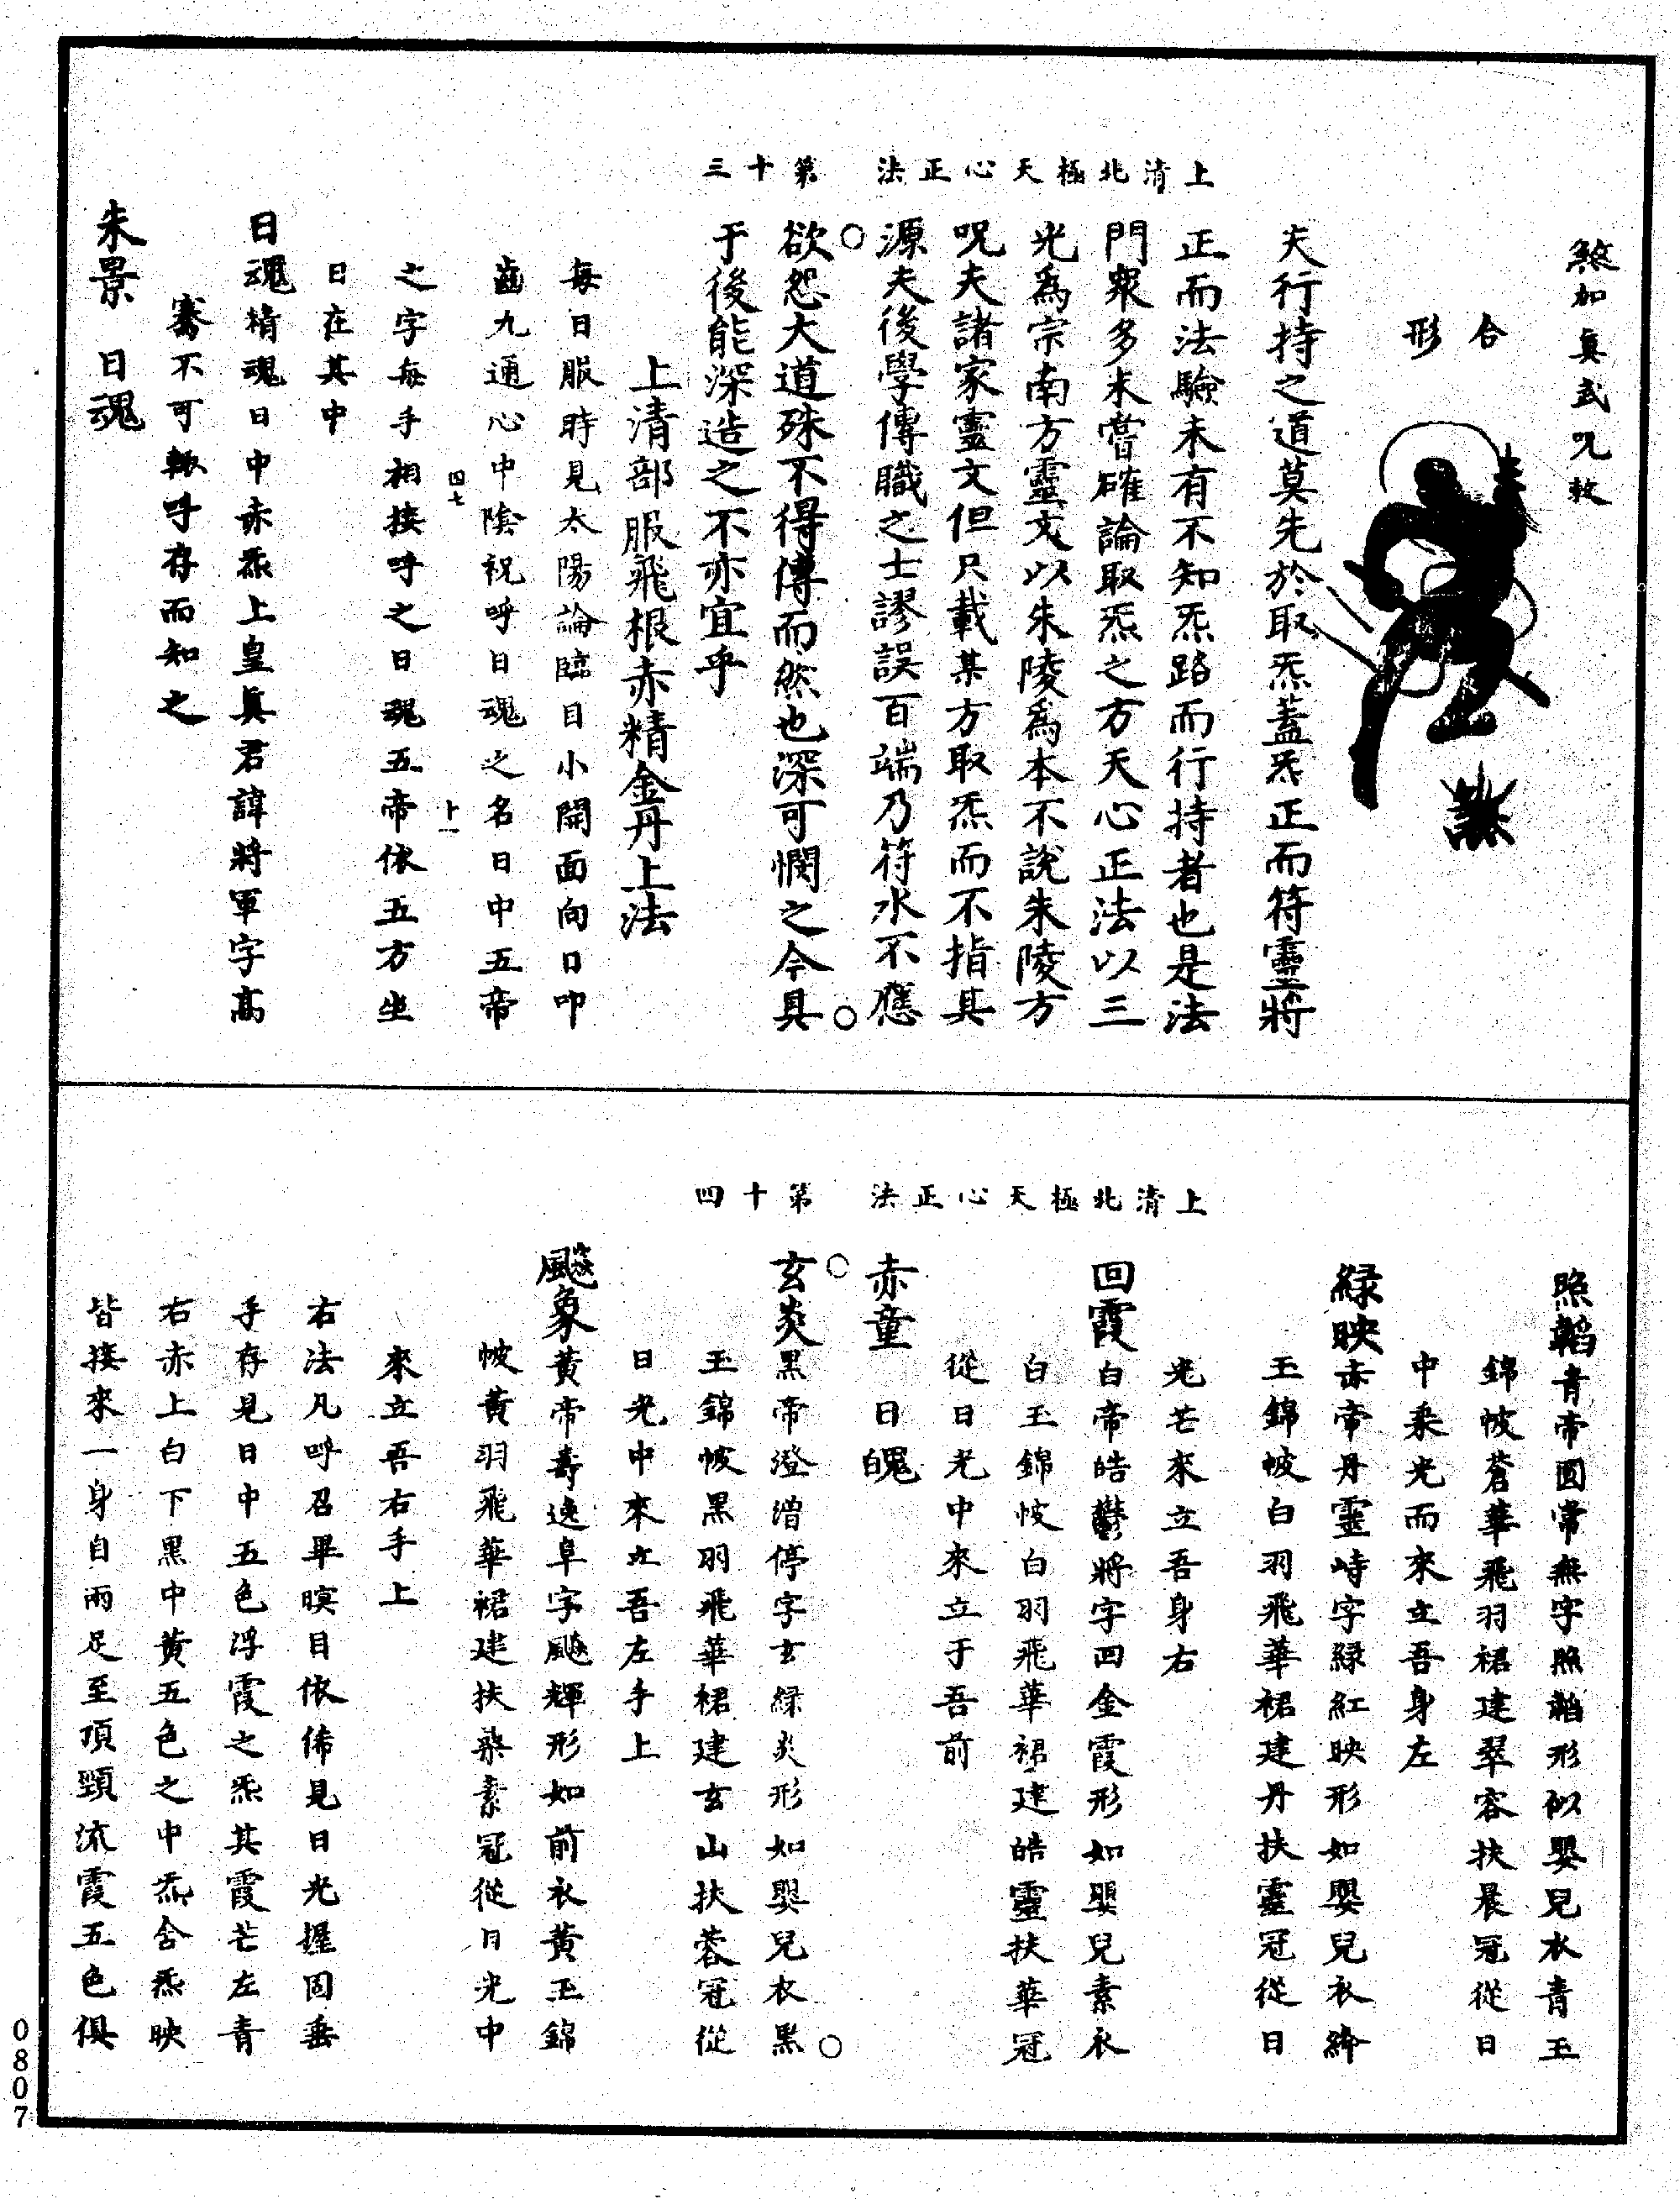 煞加真武呪敕
合
形
夫行持之道莫先於取炁蓋炁正而符靈將
正而法驗未有不知炁路而行持者也是法
門衆多未嘗確論取炁之方天心正法以三
光爲宗南方靈文以朱陵爲本不說朱陵方
呪夫諸家靈文但只載某方取炁而不指其
源夫後學傳職之士謬誤百端乃符水不應
欲怨大道殊不得傳而然也深可憫之今具
于後能深造之不亦宜乎
上清北極天心正法 第十三
上清部服飛根赤精金丹上法
每日服時見太陽論臨目小開面向日叩
齒九通心中陰祝呼日魂之名日中五帝
四七 十一
之字每手相接呼之日魂五帝依五方坐
日在其中
日魂精魂日中赤炁上皇真君諱將軍字高
騫不可輙呼存而知之
朱景 日魂
照韜青帝圓常無字照韜形似嬰兒衣青玉
錦帔蒼華飛羽裙建翠容扶晨冠從日
中乘光而來立吾身左
緑映赤帝丹靈峙字緑紅映形如嬰兒衣絳
玉錦帔白羽飛華裙建丹扶靈冠從日
光芒來立吾身右
回霞白帝皓鬱將字回金霞形如嬰兒素衣
白玉錦帔白羽飛華裙建皓靈扶華冠
從日光中來立于吾前
赤童 日魄
玄炎黑帝澄渞停字玄緑炎形如嬰兒衣黑
玉錦帔黑羽飛華裙建玄山扶蓉冠從
日光中來立吾左手上
上清北極天心正法 第十四
飈象黃帝壽逸阜字飈輝形如前衣黃玉錦
帔黃羽飛華裙建扶桑素冠從日光中
來立吾右手上
右法凡呼召畢瞑目依俙見日光握固垂
手存見日中五色浮霞之炁其霞芒左青
右赤上白下黑中黃五色之中炁含炁映
皆接來一身自兩足至頂頸流霞五色俱
0807